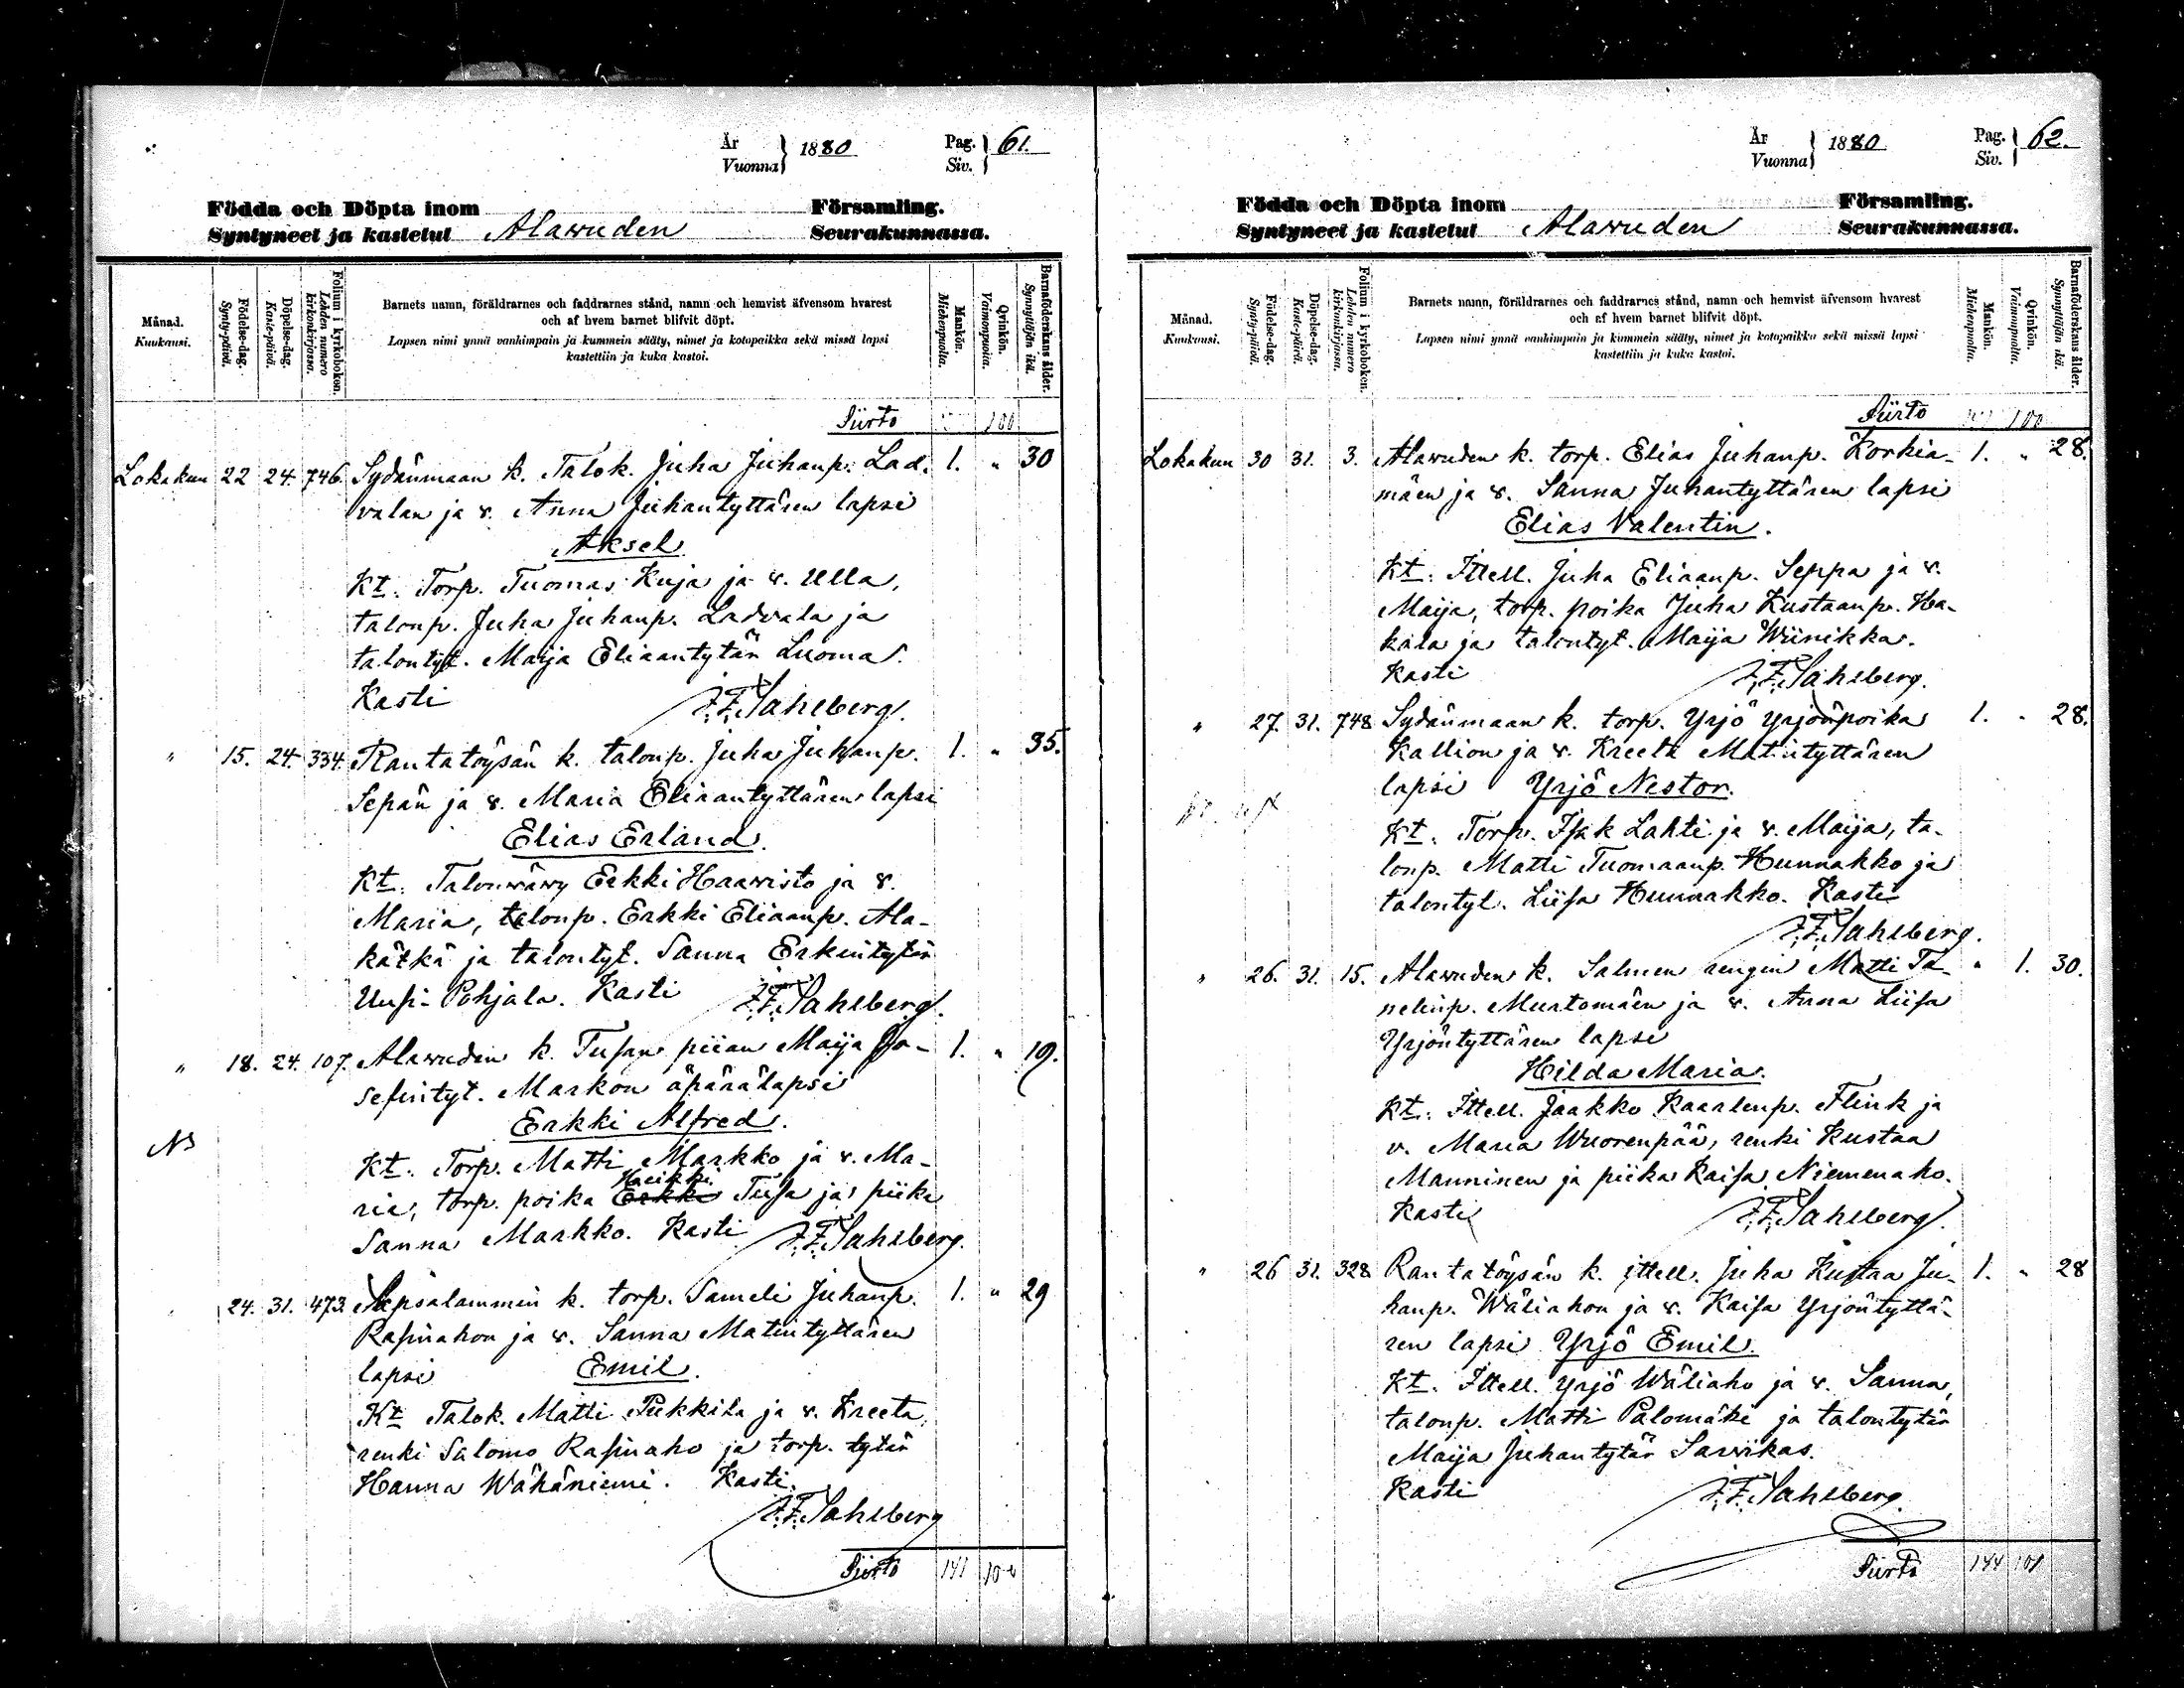 År
Vuonna } 1880 Pag.
Siv. } 61.
Födda och Döpta inom Församling.
Syntyneet ja kastetut Alawuden Seurakunnassa.
Månad.
Kuukausi.
Födelse-dag.
Synty-päivä.
Döpelse-dag.
Kaste-päivä.
Folium i kyrkoboken.
Lehden numero
kirkonkirjassa.
Barnets namn, föräldrarnes och faddrarnes stånd, namn och hemvist äfvensom hvarest
och af hvem barnet blifvit döpt.
Lapsen nimi ynnä vanhimpain ja kummein sääty, nimet ja kotopaikka sekä missä lapsi
kastettiin ja kuka kastoi.
Mankön.
Miehenpuolta.
Qvinkön.
Vaimonpuolta.
Barnaföderskans ålder.
Synnyttäjän ikä.
Siirto 100
Lokakuu 22 24. 746. Sydänmaan k. Talok. Juha Juhanp. Lad- 1. " 30
valan ja v. Anna Juhantyttären lapsi
Aksel
Kt. Torp. Tuomas Kuja ja v. Ulla,
talonp. Juha Juhanp. Ladvala ja
talontyt. Maija Eliaantytär Luoma.
Kasti F. F. Sahlberg.
" 15. 24. 334. Rantatöysän k. talonp. Juha Juhanp. 1. " 35.
Sepän ja v. Maria Eliaantyttären lapsi
Elias Erland.
Kt. Talonwäwy Erkki Haawisto ja v.
Maria, talonp. Erkki Eliaanp. Ala-
kätkä ja talontyt. Sanna Erkintytär
Uusi-Pohjala. Kasti F. F. Sahlberg.
" 18. 24. 107. Alawuden k. Tusan piian Maija Jo- 1. " 19.
sefintyt. Markon äpärälapsi
Erkki Alfred.
Kt. Torp. Matti Markko ja v. Ma-
Heikki
ria, torp. poika Erkki Tusa ja piika
Sanna Markko. Kasti F. F. Sahlberg.
24. 31. 473. Sapsalammin k. torp. Sameli Juhanp. 1. " 29
Rasinahon ja v. Sanna Matintyttären
lapsi Emil.
Kt Talok. Matti Pukkila ja v. Kreeta,
renki Salomo Rasinaho ja torp. tytär
Hanna Wähäniemi. Kasti
F. F. Sahlberg
Siirto 141 100
År
Vuonna } 1880 Pag.
Siv. } 62.
Födda och Döpta inom Församling.
Syntyneet ja kastetut Alawuden Seurakunnassa.
Månad.
Kuukausi.
Födelse-dag.
Synty-päivä.
Döpelse-dag.
Kaste-päivä.
Folium i kyrkoboken.
Lehden numero
kirkonkirjassa.
Barnets namn, föräldrarnes och faddrarnes stånd, namn och hemvist äfvensom hvarest
och af hvem barnet blifvit döpt.
Lapsen nimi ynnä vanhimpain ja kummein sääty, nimet ja kotopaikka sekä missä lapsi
kastettiin ja kuka kastoi.
Mankön.
Miehenpuolta.
Qvinkön.
Vaimonpuolta.
Barnaföderskans ålder.
Synnyttäjän ikä.
Siirto 100
Lokakuu 30 31. 3. Alawuden k. torp. Elias Juhanp. Korkia- 1. " 28.
mäen ja v. Sanna Juhantyttären lapsi
Elias Valentin.
Kt. Ittell. Juha Eliaanp. Seppä ja v.
Maija, torp. poika Juha Kustaanp. Ha-
kala ja talontyt. Maija Wiinikka.
Kasti F. F. Sahlberg.
" 27. 31. 748 Sydänmaan k. torp. Yrjö Yrjönpoika 1. " 28.
Kallion ja v. Kreeta Matintyttären
lapsi Yrjö Nestor.
Kt. Torp. Isak Lahti ja v. Maija, ta-
lonp. Matti Tuomaanp. Hunnakko ja
talontyt. Liisa Hunnakko. Kasti
F. F. Sahlberg.
" 26. 31. 15. Alawuden k. Salmen rengin Matti Ta- " 1. 30.
nelinp. Murtomäen ja v. Anna Liisa
Yrjöntyttären lapsi
Hilda Maria.
Kt. Ittell. Jaakko Kaarlenp. Flink ja
v. Maria Wuorenpää, renki Kustaa
Manninen ja piika Kaisa Niemenaho.
Kasti F. F. Sahlberg.
" 26 31. 328 Rantatöysän k. ittell. Juha Kustaa Ju- 1. " 28
hanp. Wäliahon ja v. Kaisa Yrjöntyttä-
ren lapsi Yrjö Emil.
Kt. Ittell. Yrjö Wäliaho ja v. Sanna,
talonp. Matti Palomäki ja talontytär
Maija Juhantytär Sarvikas.
Kasti F. F. Sahlberg.
Siirto 144 101